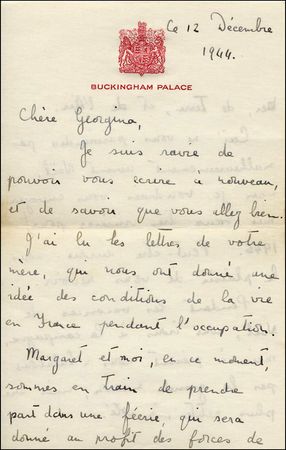 Le 12 Décembre
1944.
BUCKINGHAM PALACE
Chère Georgina,
Je suis ravie de
pouvoir vous écrire à nouveau,
et de savoir que vous allez bien.
J'ai lu les lettres de votre
mère, qui nous ont donné une
idée des conditions de la vie
en France pendant l'occupation.
Margaret et moi, en ce moment,
sommes en train de prendre
part dans une féerie, qui sera
donné au profit des forces de